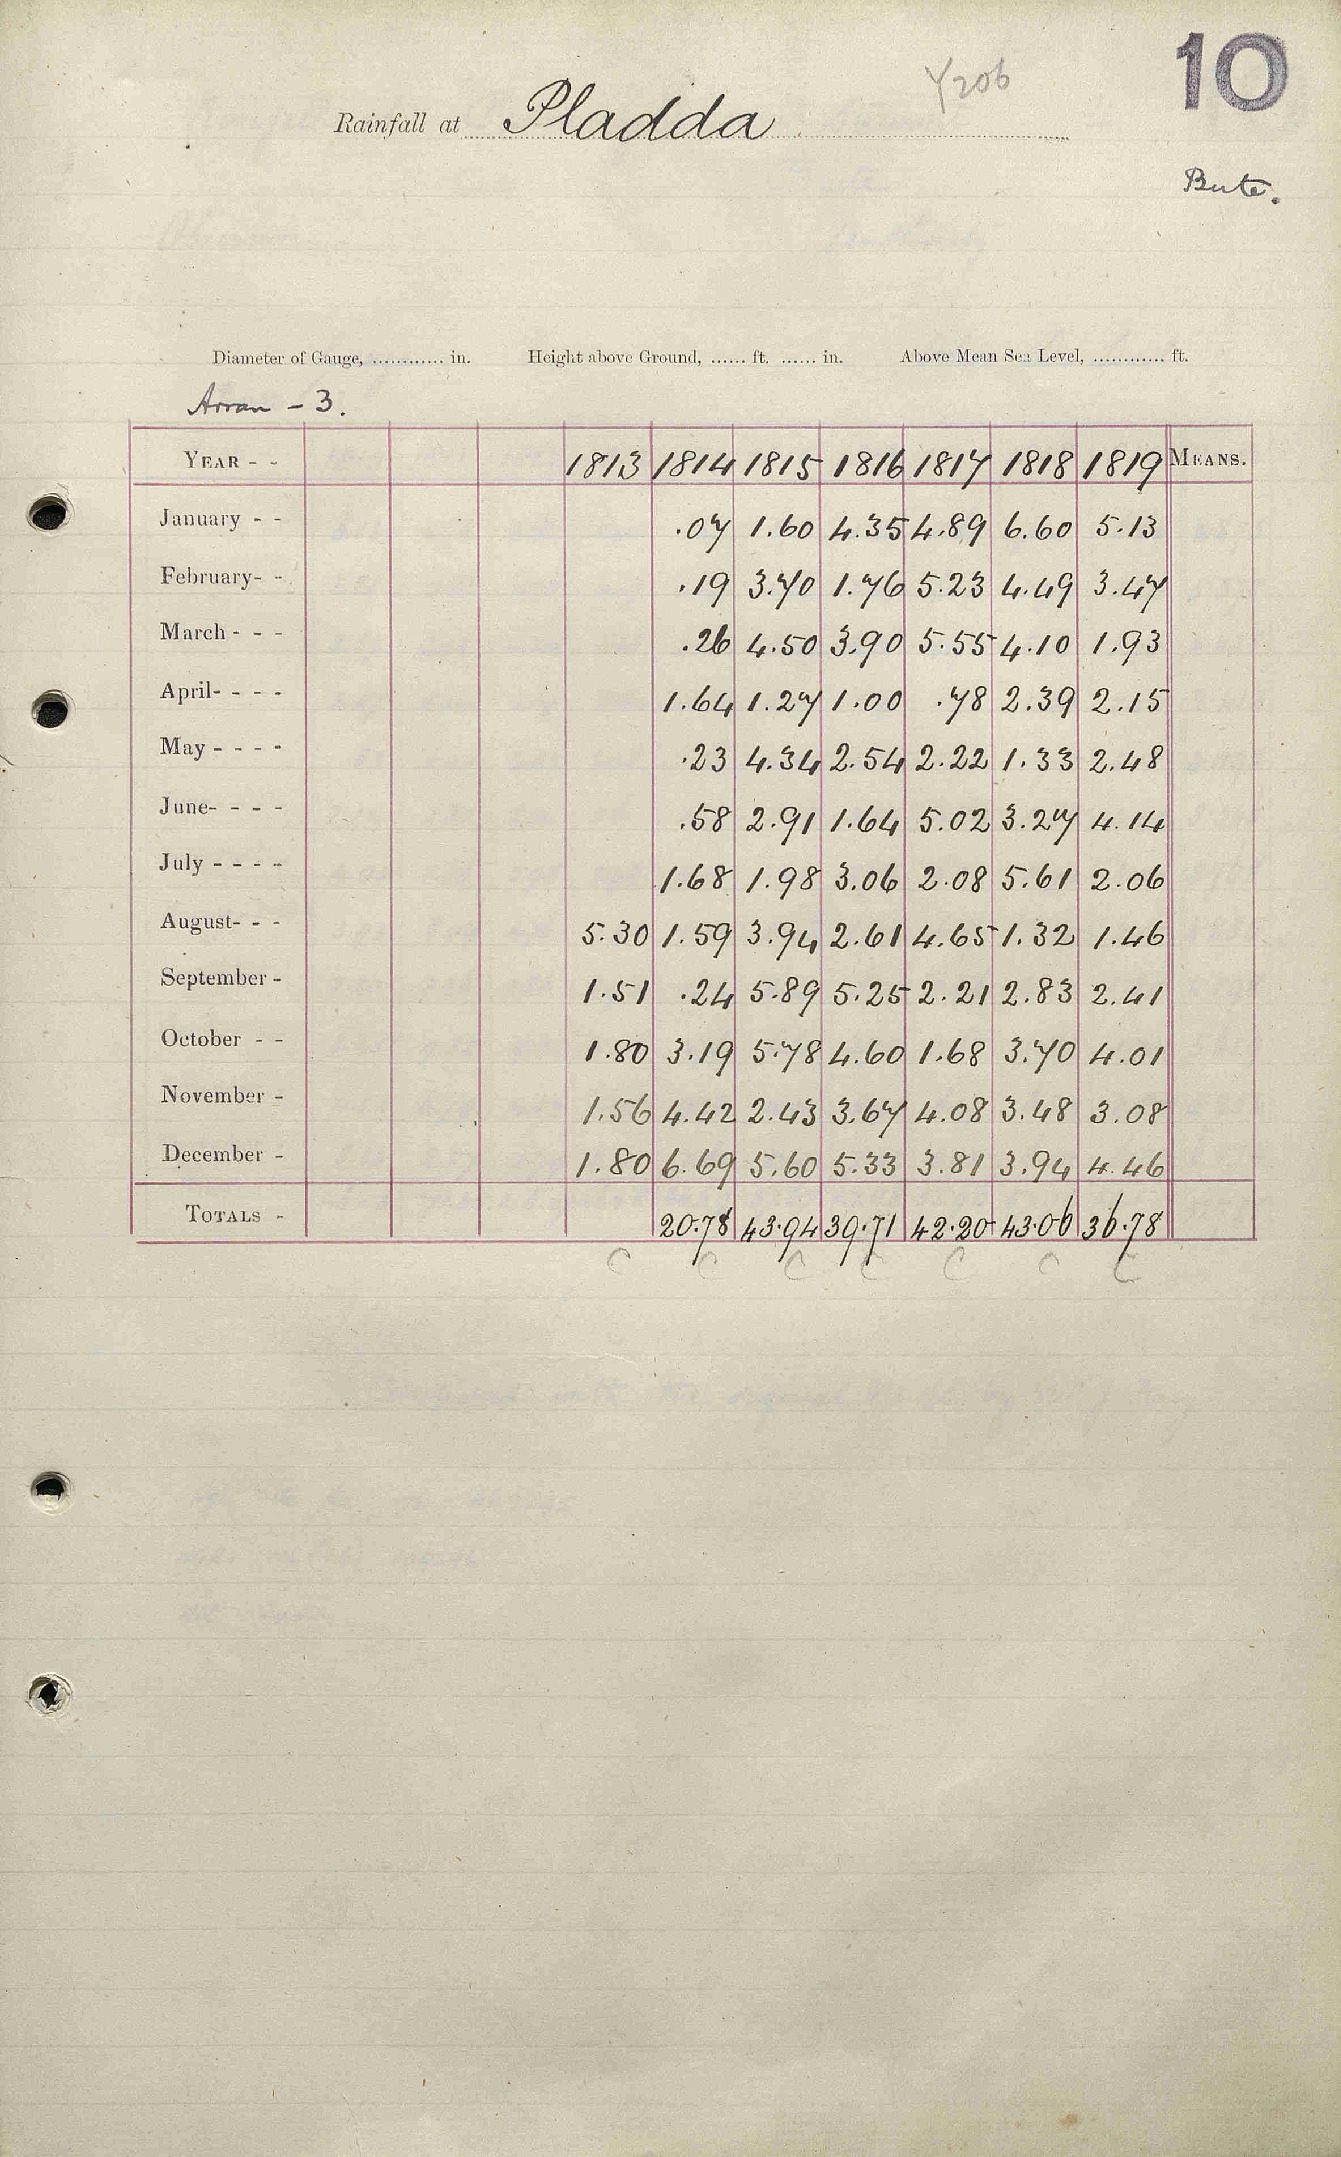 10
Y206
Rainfall at Pladda
Bute.
Diameter of Gauge, ............ in. Height above Ground, ...... ft. ...... in. Above Mean Sea Level, ............ ft.
Arran - 3.
YEAR - - 1813 1814 1815 1816 1817 1818 1819 MEANS.
January - - .07 1.60 4.35 4.89 6.60 5.13
February- - .19 3.70 1.76 5.23 4.49 3.47
March - - - .26 4.50 3.90 5.55 4.10 1.93
April- - - - 1.64 1.27 1.00 .78 2.39 2.15
May - - - - .23 4.34 2.54 2.22 1.33 2.48
June- - - - .58 2.91 1.64 5.02 3.27 4.14
July - - - - 1.68 1.98 3.06 2.08 5.61 2.06
August- - - 5.30 1.59 3.94 2.61 4.65 1.32 1.46
September - 1.51 .24 5.89 5.25 2.21 2.83 2.41
October - - 1.80 3.19 5.78 4.60 1.68 3.70 4.01
November - 1.56 4.42 2.43 3.67 4.08 3.48 3.08
December - 1.80 6.69 5.60 5.33 3.81 3.94 4.46
TOTALS - 20.78 43.94 39.71 42.20 43.06 36.78
C C C C C C C